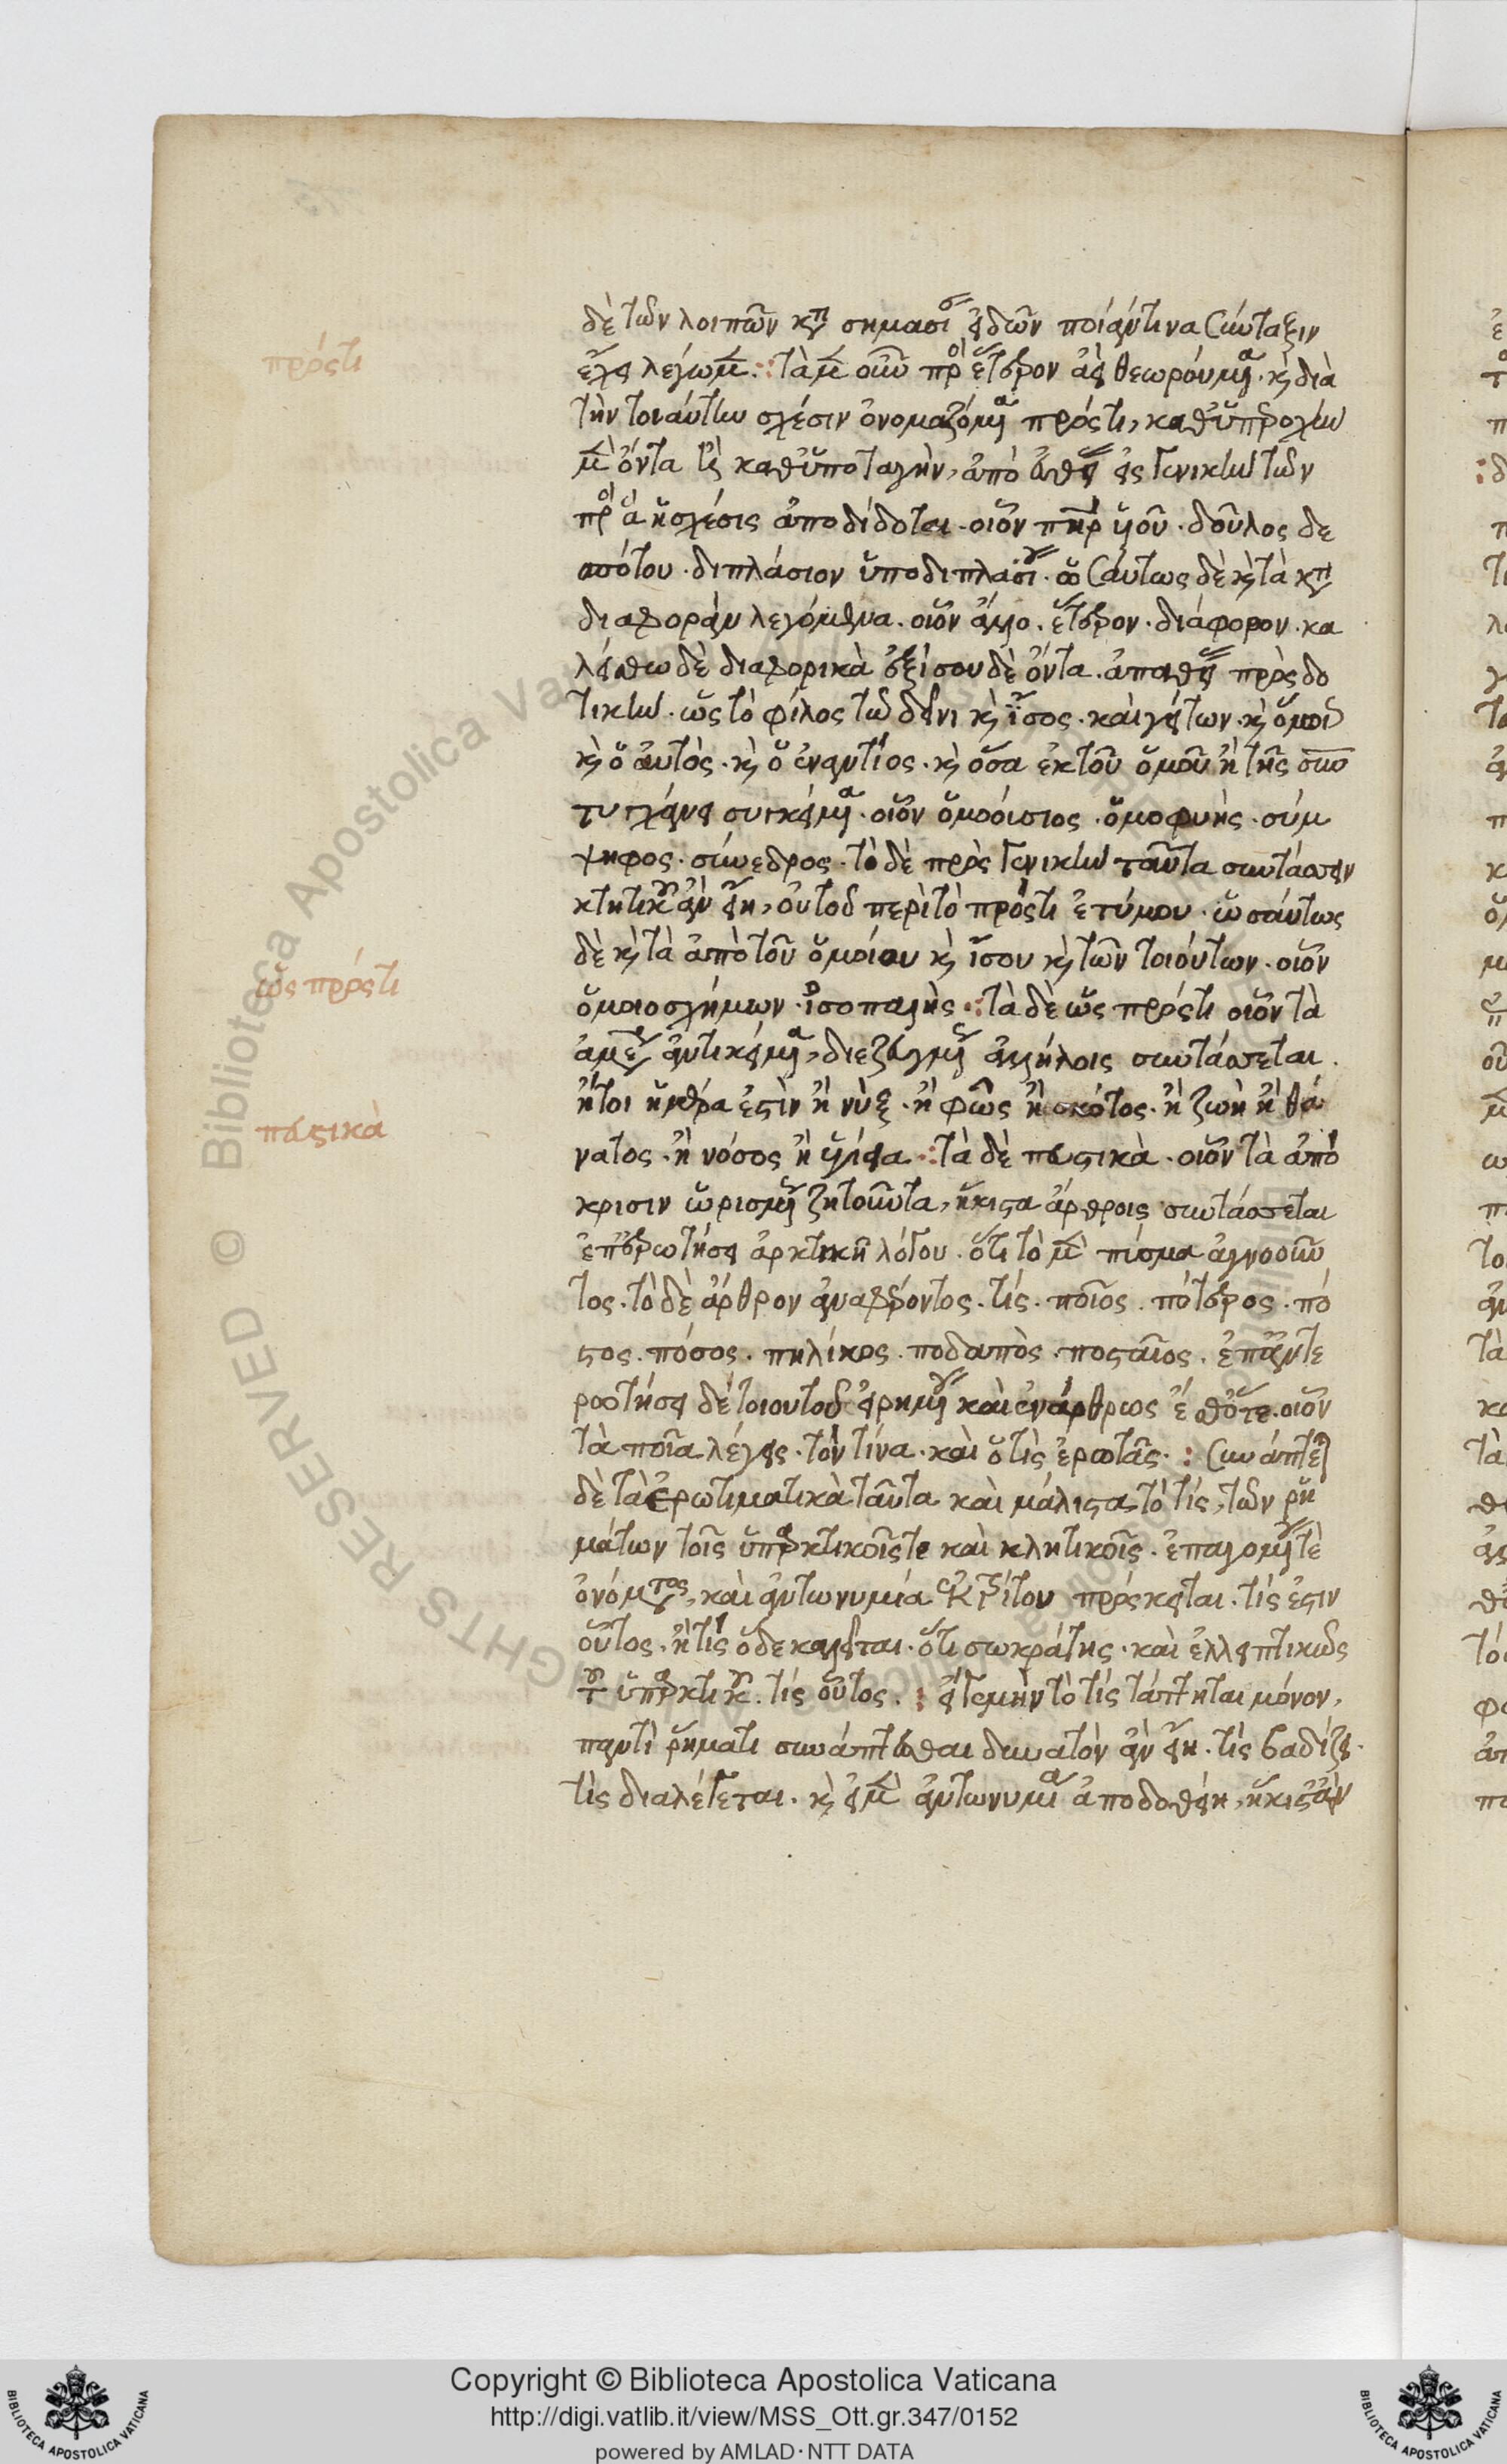 δὲ τῶν λοιπῶν κατὰ σημασίας εἰδῶν ποίαν τινα σύνταξιν
πρόςτι
ἔχει λέγωμεν. τὰ μὲν οὖν πρὸς ἕτερον ἀεὶ θεωρούμενα. καὶ διὰ
τὴν τοιαύτην σχέσιν ὀνομαζόμενα πρόςτι, καθ ὑπεροχὴν
μὲν ὄντα ἢ καθ ὑποταγὴν, ἀπὸ εὐθείας εἰς γενικὴν τῶν
πρὸς ἃ ἡ σχέσις ἀποδίδοται. οἷον πατὴρ υἱοῦ. δοῦλος δε
σπότου. διπλάσιον ὑποδιπλασίου. ὡσαύτως δὲ καὶ τὰ κατὰ
διαφορὰν λεγόμενα. οἷον ἄλλο. ἕτερον. διάφορον. κα
λείσθω δὲ διαφορικὰ ἐξίσου δὲ ὄντα. ἀπευθείας πρὸς δο
τικήν. ὡς τὸ φίλος τῷ δεῖνι καὶ ἴσος. καὶ γείτων. καὶ ὅμοιος
καὶ ὁ αὐτὸς. καὶ ὁ ἐναντίος. καὶ ὅσα ἐκ τοῦ ὁμοῦ ἢ τῆς σὺν
τυγχάνει συγκείμενα. οἷον ὁμοούσιος. ὁμοφυής. σύμ
ψηφος. σύνεδρος. τὸ δὲ πρὸς γενικὴν ταῦτα συντάσσειν
κτητικῶν ἂν εἴη, οὐ τοῦ περὶ τὸ πρόςτι ἐτύμου. ὡσαύτως
δὲ καὶ τὰ ἀπὸ τοῦ ὁμοίου καὶ ἴσου καὶ τῶν τοιούτων. οἷον
ὡς πρόςτι
ὁμοιοσχήμων. ἰσοπαλής. τὰ δὲ ὡς πρόςτι οἷον τὰ
ἀμέσως ἀντικείμενα, διεζευγμένως ἀλλήλοις συντάσσεται.
ἤτοι ἡμέρα ἐστὶν ἢ νὺξ. ἢ φῶς ἢ σκότος. ἢ ζωὴ ἢ θά
πευστικὰ
νατος. ἢ νόσος ἢ ὑγίεια. τὰ δὲ πευστικὰ. οἷον τὰ ἀπό
κρισιν ὡρισμένως ζητοῦντα, ἥκιστα ἄρθροις συντάσσεται
ἐπ ἐρωτήσει ἀρκτικῇ λόγου. ὅτι τὸ μὲν πύσμα ἀγνοοῦν
τος. τὸ δὲ ἄρθρον ἀναφέροντος. τίς. ποῖος. πότερος. πό
στος. πόσος. πηλίκος. ποδαπὸς. ποσταῖος. ἐπ ἀντε
ρωτήσει δὲ τοιούτου εἰρημένου καὶ ἐνάρθρως ἔσθότε. οἷον
τὰ ποῖα λέγεις. τὸν τίνα. καὶ ὁ τίς ἐρωτᾷς. συνάπτεται
δὲ τὰ ἐρωτιματικὰ ταῦτα καὶ μάλιστα τὸ τίς, τῶν ῥη
μάτων τοῖς ὑπαρκτικοῖς τε καὶ κλητικοῖς. ἐπαγομένου τὲ
ὀνόματος, καὶ ἀντωνυμία ἐκ τρίτου πρόσκειται. τίς ἐστιν
οὗτος. ἢ τίς ὅδε καλεῖται. ὅτι σωκράτης. καὶ ἐλλειπτικῶς
τῶν ὑπαρκτικῶν. τίς οὗτος. εἴγε μὴν τὸ τίς τάττηται μόνον,
παντὶ ῥήματι συνάπτεσθαι δυνατὸν ἂν εἴη. τίς βαδίζει.
τίς διαλέγεται. καὶ εἰ μὲν ἀντωνυμία ἀποδοθείη, ἥκιστ ἂν
Copyright © Biblioteca Apostolica Vaticana
http://digi.vatlib.it/view/MSS_Ott.gr.347/0152
powered by AMLAD·NTT DATA